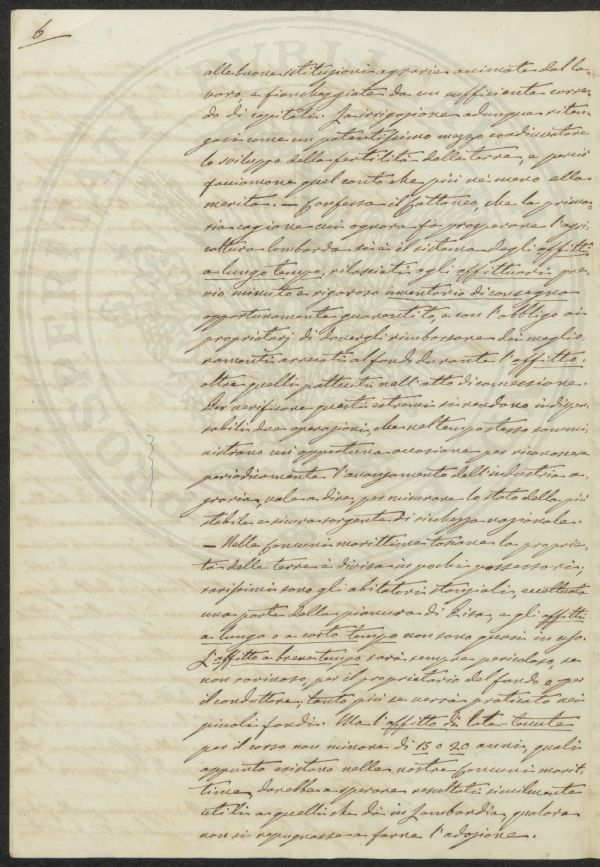 6
alle buone istituzioni agrarie animate dal la-
voro, e fiancheggiate da un sufficiente corre-
do di capitali. La irrigazione adunque riten-
gasi come un potentissimo mezzo coadiuvatore
lo sviluppo della fertilità delle terre, e perciò
facciamone quel conto che più né meno ella
merita. — Confessa il Cattaneo, che la prima-
ria cagione cui ognora fa prosperare l'agri-
coltura lombarda sia il sistema degli affitti
a lungo tempo, rilasciati agli affittuari pre-
vio minuto e rigoroso inventario di consegna
opportunamente guarentito, e con l'obbligo ai
proprietarj di dovergli rimborsare dei miglio-
ramenti arrecati al fondo durante l'affitto,
oltre quelli pattuiti nell'atto di concessione.
Per verificare questi estremi si rendono indispen-
sabili due operazioni, che nel tempo stesso sommi-
nistrano un'opportuna occasione per riconoscere
periodicamente l'avanzamento dell'industria a-
graria, vale a dire, per misurare lo stato della più
stabile e sicura sorgente di ricchezza nazionale.
— Nelle Comuni marittime toscane la proprie-
tà delle terre è divisa in pochi possessori;
rarissimi sono gli abitatori stanziali, eccettuata
una parte della pianura di Pisa, e gli affitti
a lungo o a corto tempo non sono quasi in uso.
L'affitto a breve tempo sarà sempre pericoloso, se
non rovinoso, per il proprietario del fondo o per
il conduttore, tanto più se verrà praticato nei
piccoli fondi. Ma l'affitto di late tenute
per il corso non minore di 15 o 20 anni, quali
appunto esistono nelle nostre Comuni marit-
time, dovrebbe sperare resultati similmente
utili a quelli che dà in Lombardia, qualora
non si repugnasse a farne l'adozione.
PVBLI
PROSPERITATI